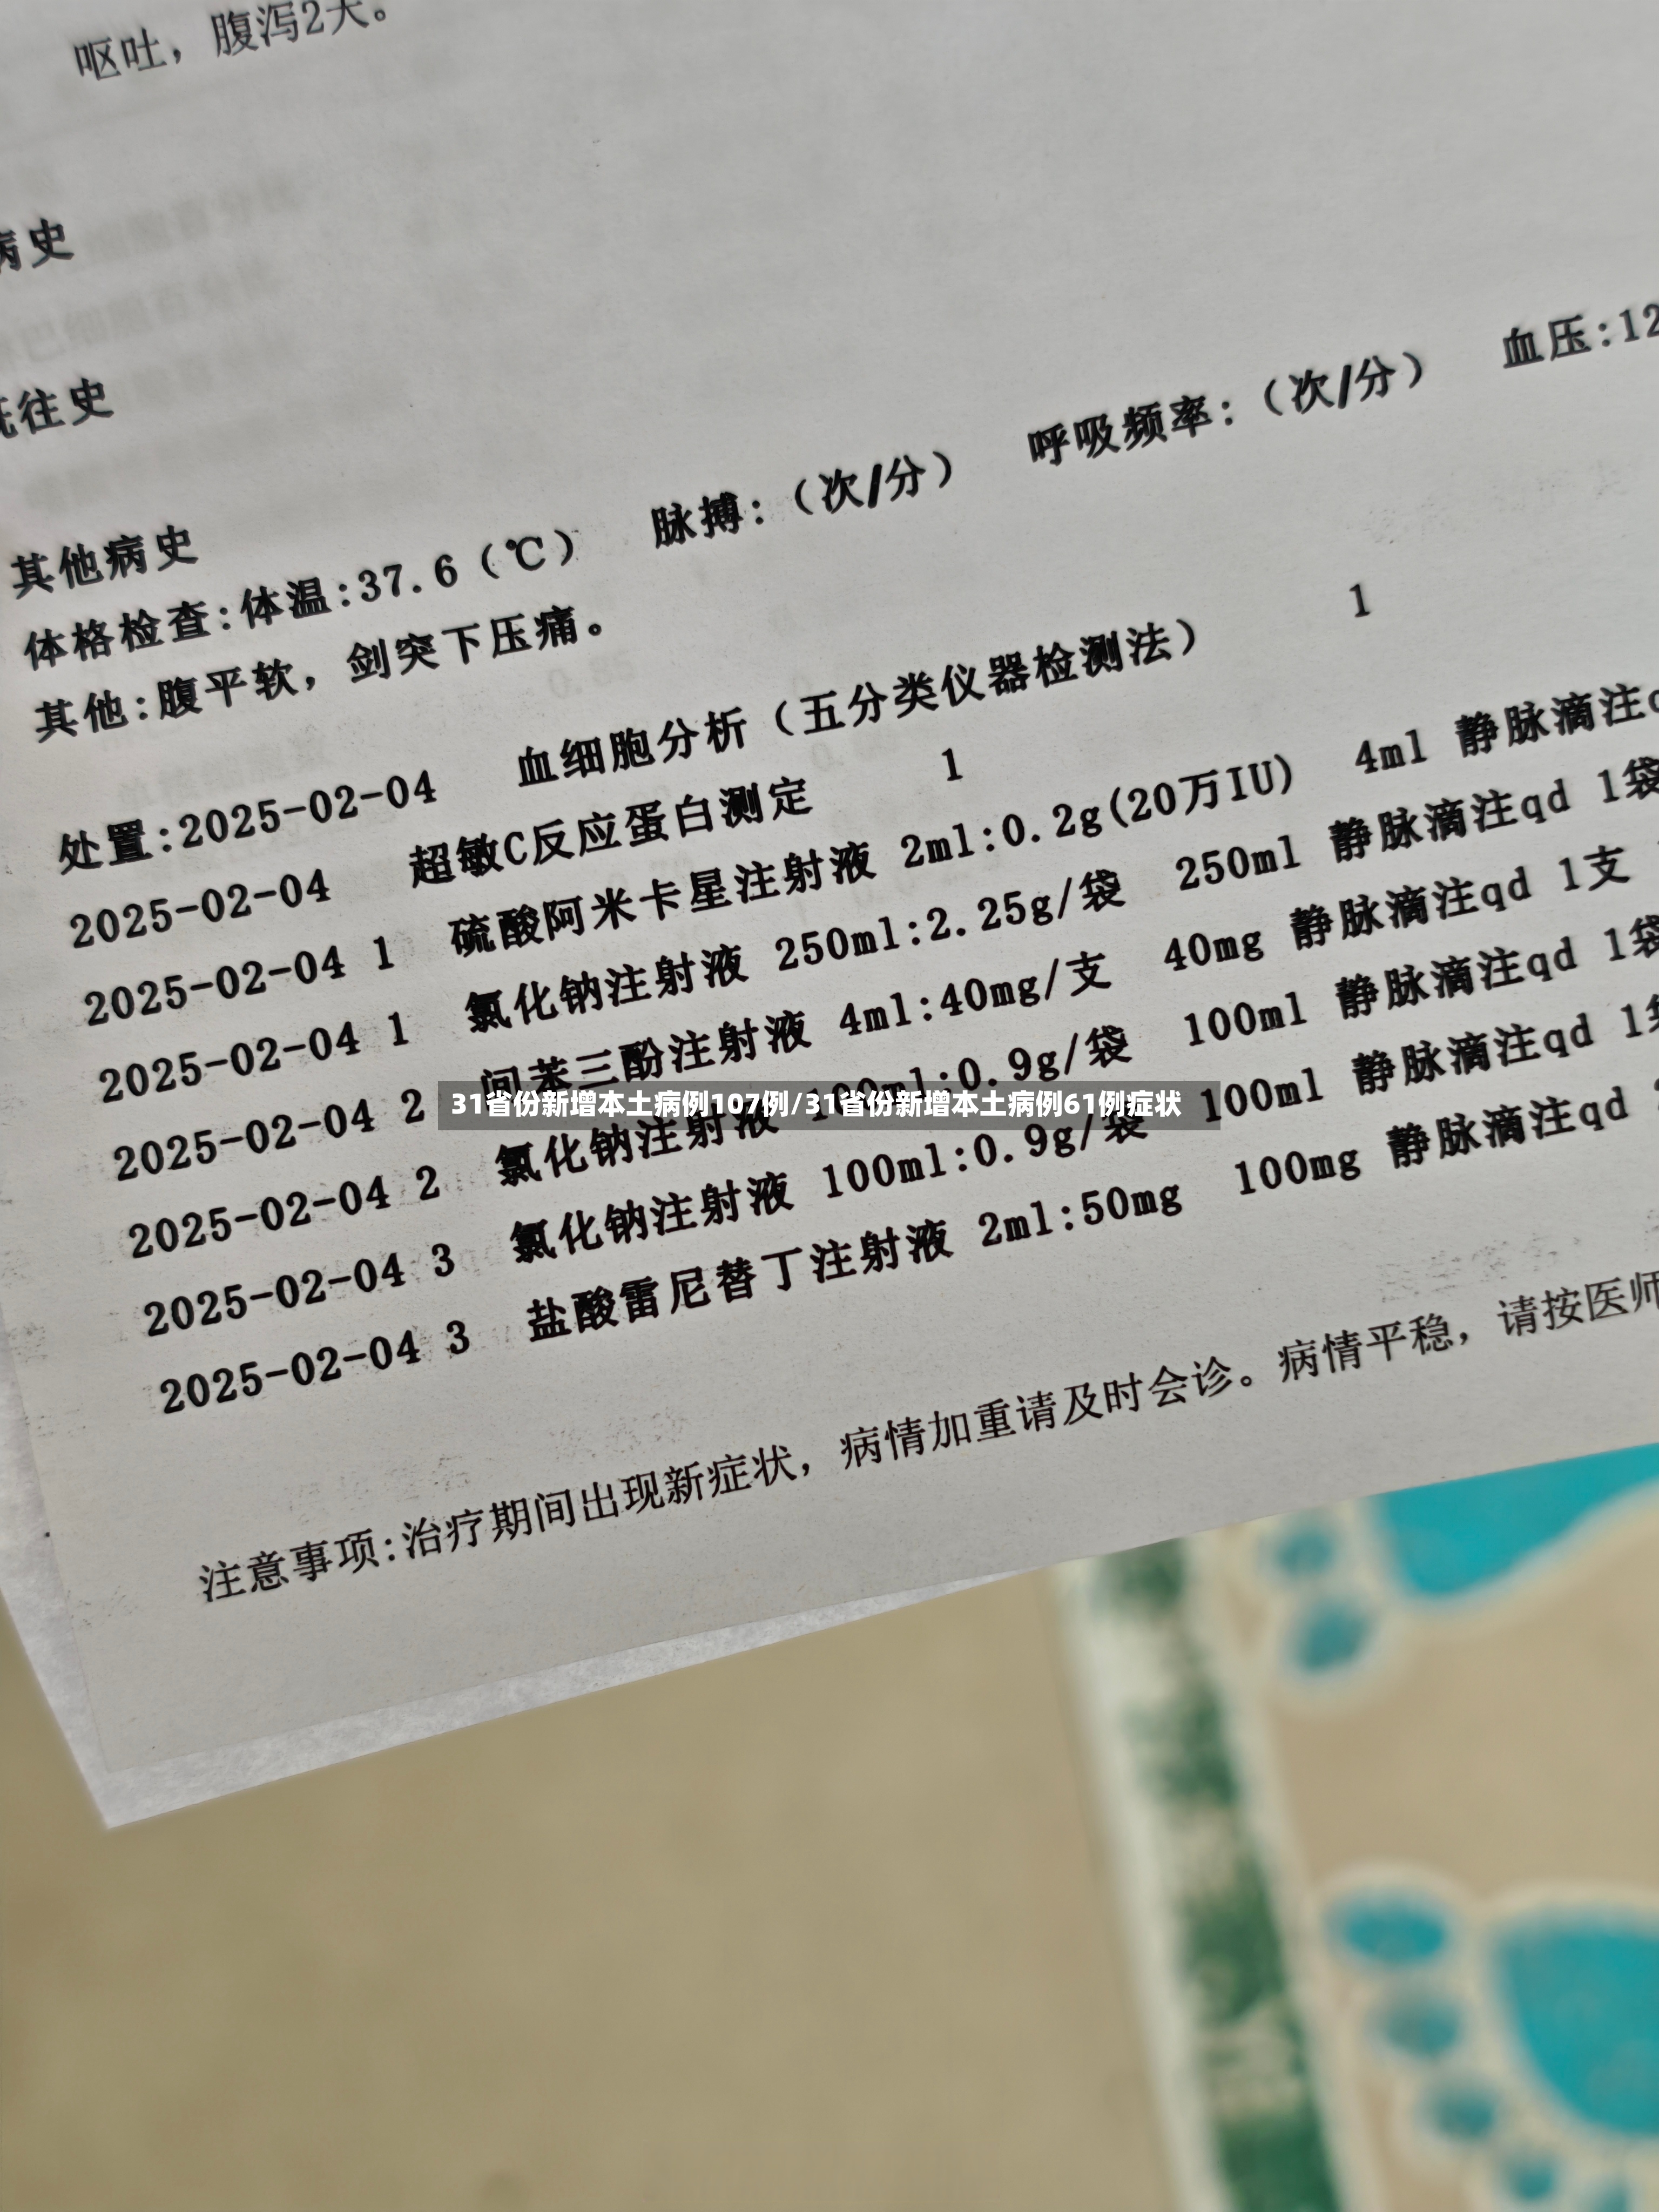 呕吐，腹泻2天。
病史
既往史
其他病史
体格检查:体温:37.6（℃） 脉搏:（次/分） 呼吸频率:（次/分） 血压:12
其他:腹平软，剑突下压痛。
处置:2025-02-04 血细胞分析（五分类仪器检测法） 1
2025-02-04 超敏C反应蛋白测定 1
2025-02-04 1 硫酸阿米卡星注射液 2ml:0.2g(20万IU) 4ml 静脉滴注q
2025-02-04 1 氯化钠注射液 250ml:2.25g/袋 250ml 静脉滴注qd 1袋
2025-02-04 2 间苯三酚注射液 4ml:40mg/支 40mg 静脉滴注qd 1支
2025-02-04 2 氯化钠注射液 100ml:0.9g/袋 100ml 静脉滴注qd 1袋
2025-02-04 3 氯化钠注射液 100ml:0.9g/袋 100ml 静脉滴注qd 1袋
2025-02-04 3 盐酸雷尼替丁注射液 2ml:50mg 100mg 静脉滴注qd
31省份新增本土病例107例/31省份新增本土病例61例症状
注意事项:治疗期间出现新症状，病情加重请及时会诊。病情平稳，请按医师